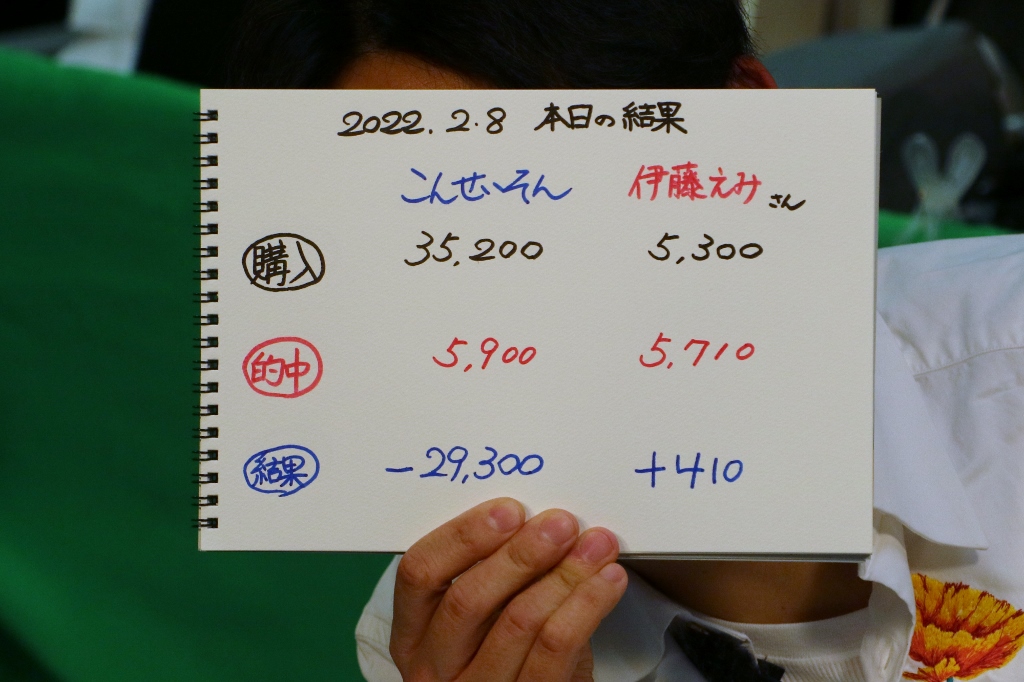 2022.2.8 本日の結果
こんせいそん 伊藤えみさん
購入 35,200 5,300
的中 5,900 5,710
結果 -29,300 +410